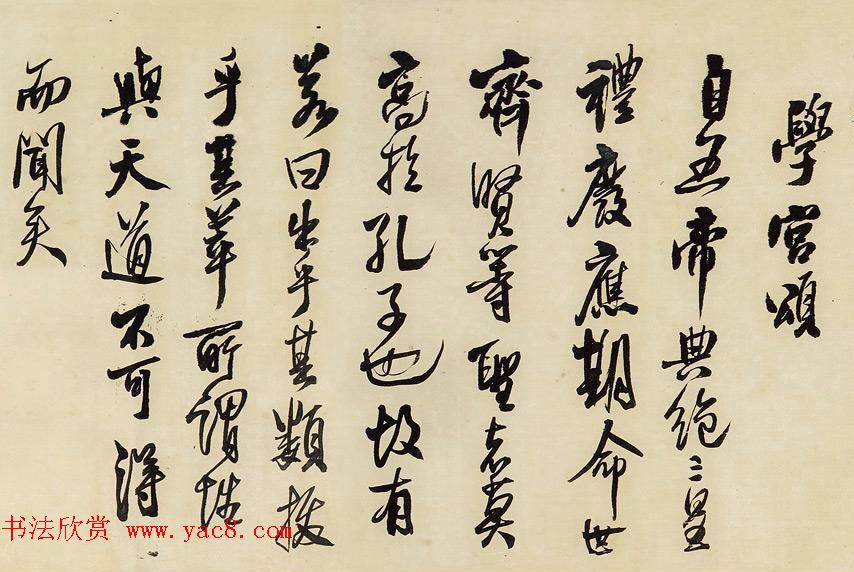 學宮頌
自五帝典絕三皇
禮廢應期命世
齊賢等聖者莫
高於孔子也故有
若曰出乎其類拔
乎其萃所謂性
與天道不可得
而聞矣
书法欣赏 www.yac8.com